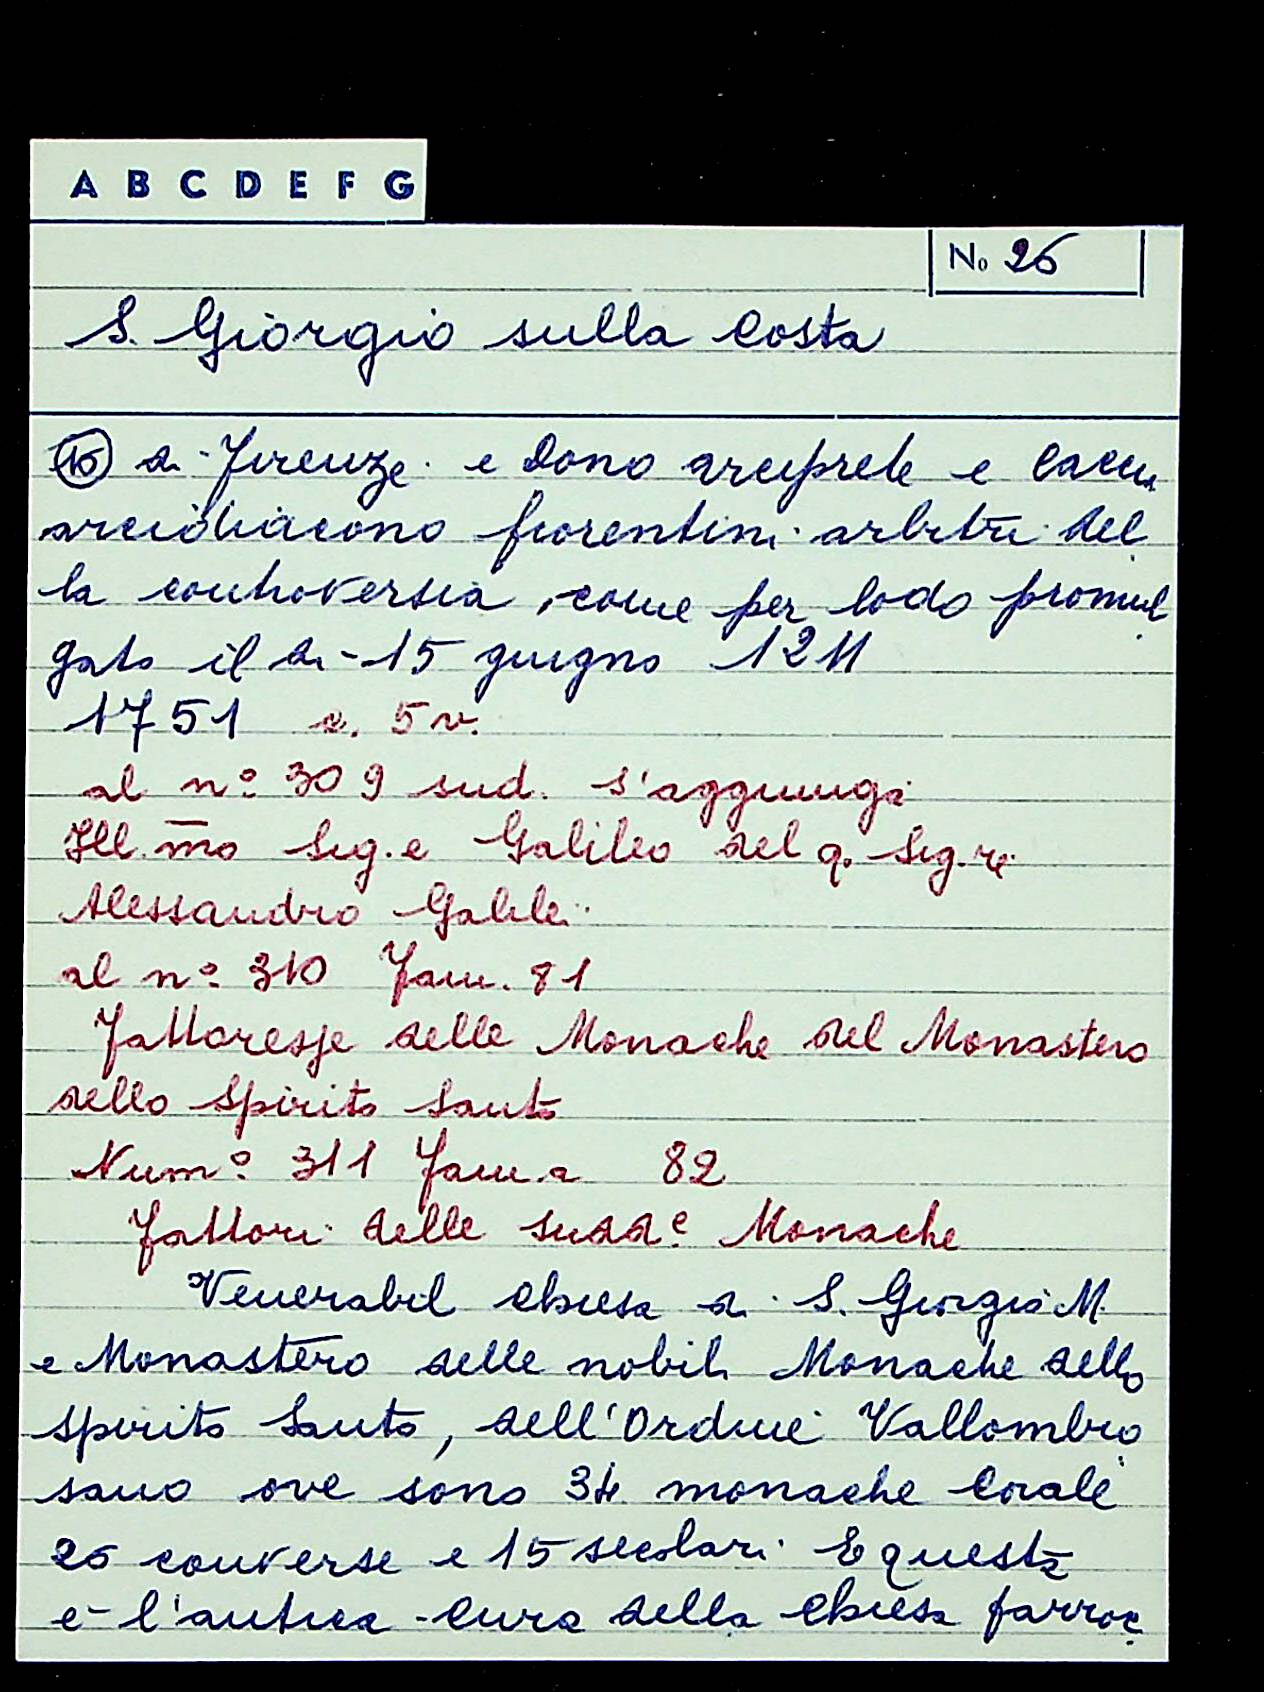 A B C D E F G
No 26
S. Giorgio sulla Costa
16 di Firenze e Dono arciprete e Cacci
arcidiacono fiorentini arbitri del
la controversia, come per lodo promul
gato il dì 15 giugno 1211
1751 c. 5 v.
al n° 309 sud. s'aggiunga
Ill.mo Sig.e Galileo del q. Sig.re
Alessandro Galilei
al n° 310 Fam. 81
Fattoresse delle Monache del Monastero
dello Spirito Santo
Num° 311 Fam.a 82
Fattori delle sudd.e Monache
Venerabil Chiesa di S. Giorgio M.
e Monastero delle nobili Monache dello
Spirito Santo, dell'Ordine Vallombro
sano ove sono 34 monache Corale
26 converse e 15 secolari E questa
è l'antica cura della Chiesa parroc